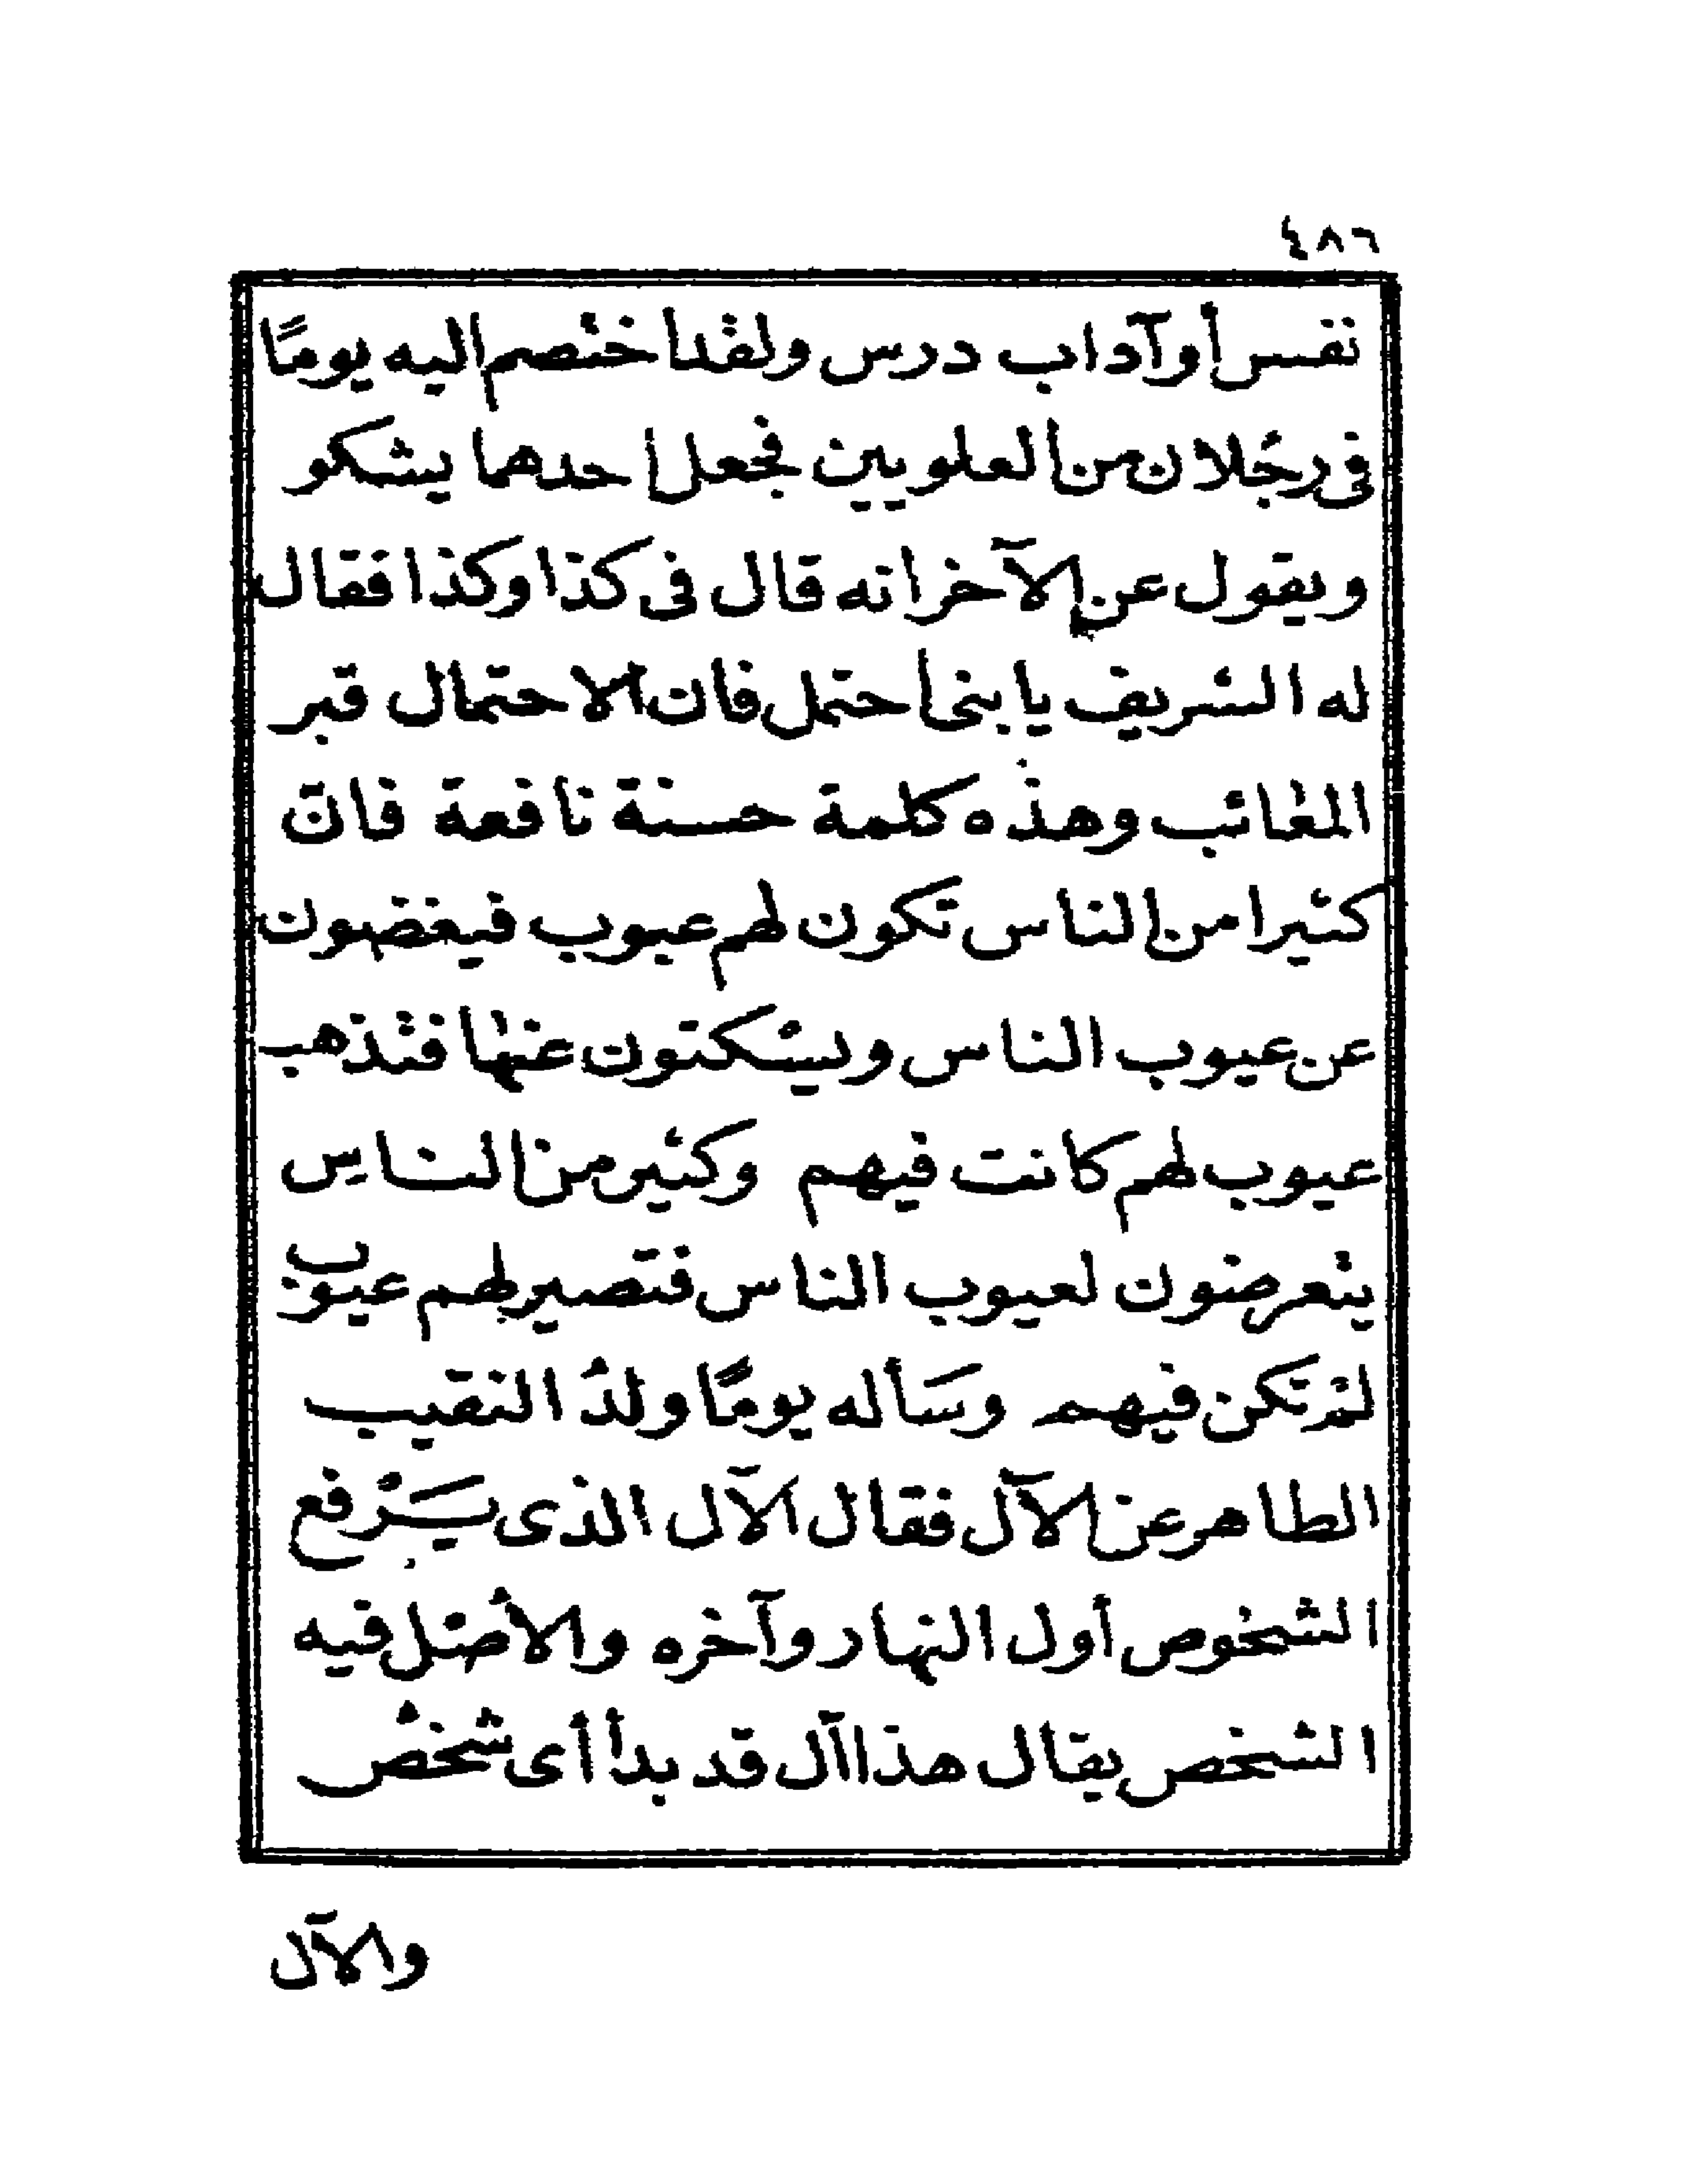 ٤٨٦
نفس أو آداب درس ولقد اختصم اليه يومًا
فى رجلان من العلويين فجعل احدهما يشكو
ويقول عن الآخر انه قال فى كذا وكذا فقال
له الشريف يا بنى احتمل فان الاحتمال قبر
المغائب وهذه كلمة حسنة نافعة فانّ
كثيرا من الناس تكون لهم عيوب فيغضون
عن عيوب الناس ويسكتون عنها فتذهب
عيوب لهم كانت فيهم وكثير من الناس
يتعرضون لعيوب الناس فتصير لهم عيوب
لم تكن فيهم وسَأله يومًا ولدُ النقيب
الطاهر عن الآل فقال الآل الذى يَرْفع
الشخوص أول النهار وآخره والأصْل فيه
الشخص يقال هذا اآل قد بدأ أى شخْصُ
والآل